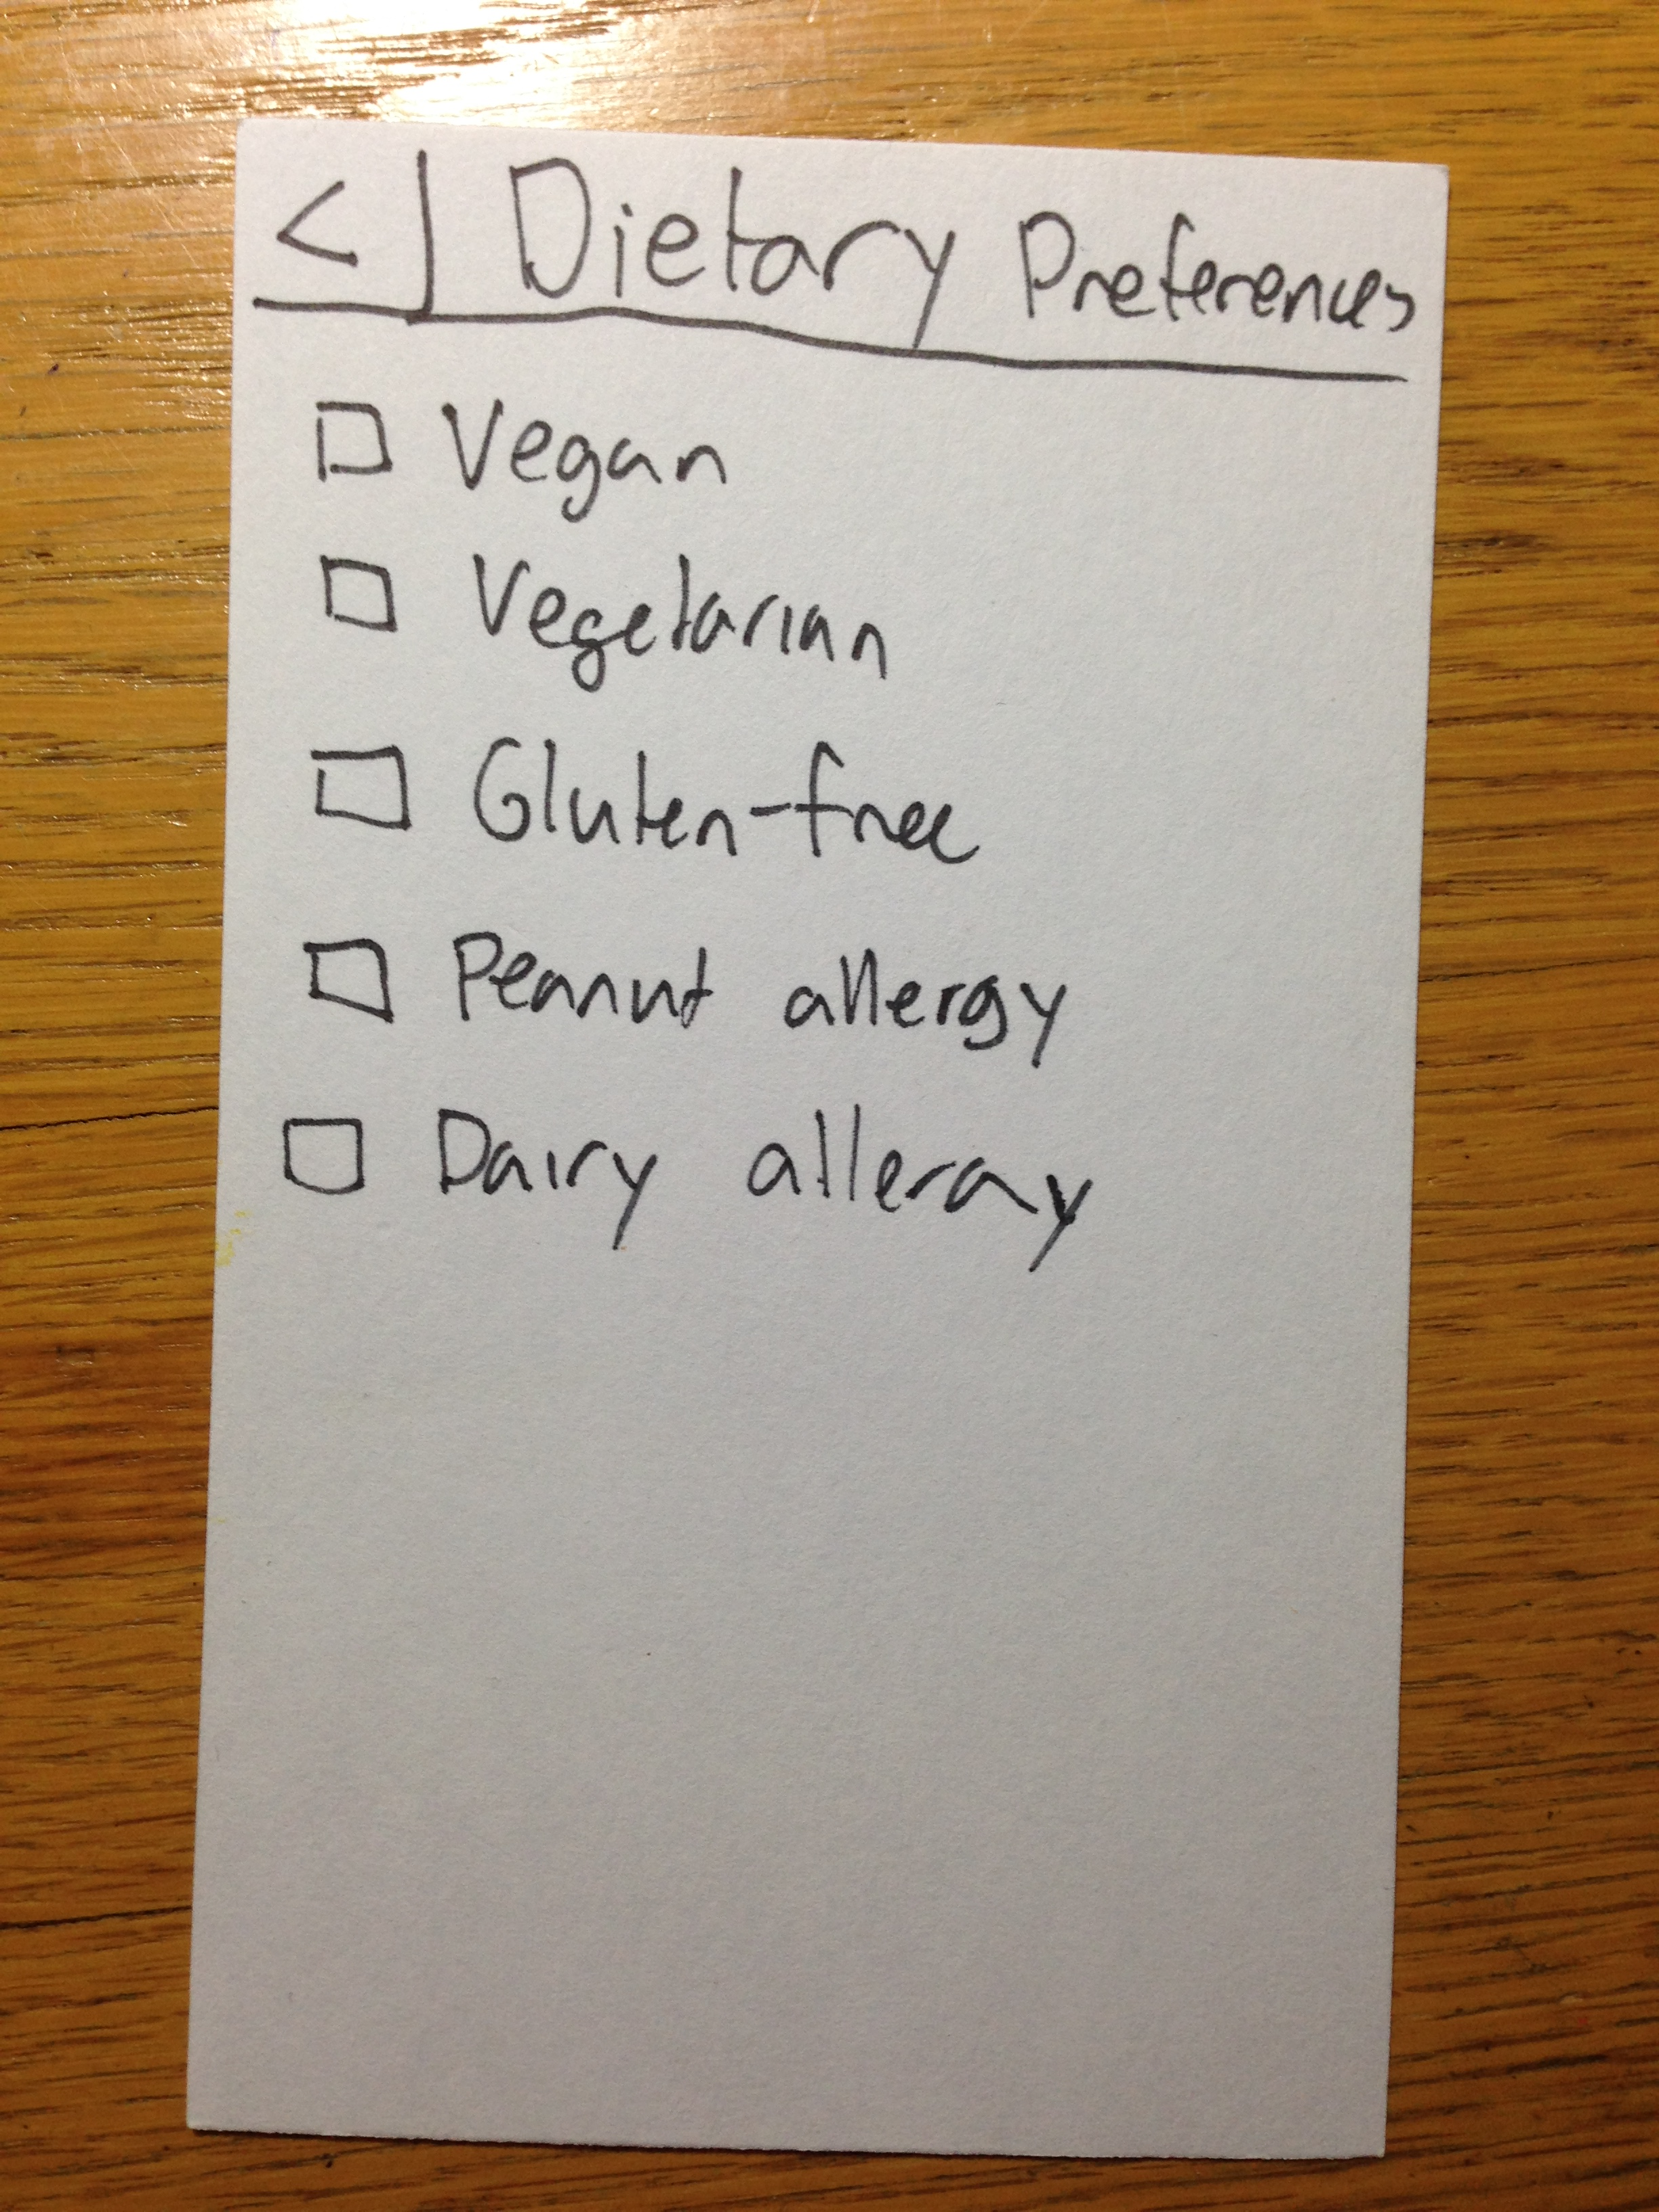 < | Dietary Preferences
☐ Vegan
☐ Vegetarian
☐ Gluten-free
☐ Peanut allergy
☐ Dairy allergy